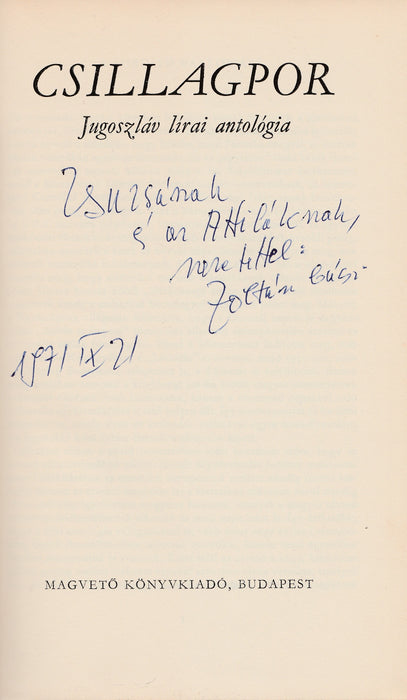 CSILLAGPOR
Jugoszláv lírai antológia
Zsuzsának
és az Attiláknak,
szeretettel:
Zoltán
1971 IX 21
MAGVETŐ KÖNYVKIADÓ, BUDAPEST